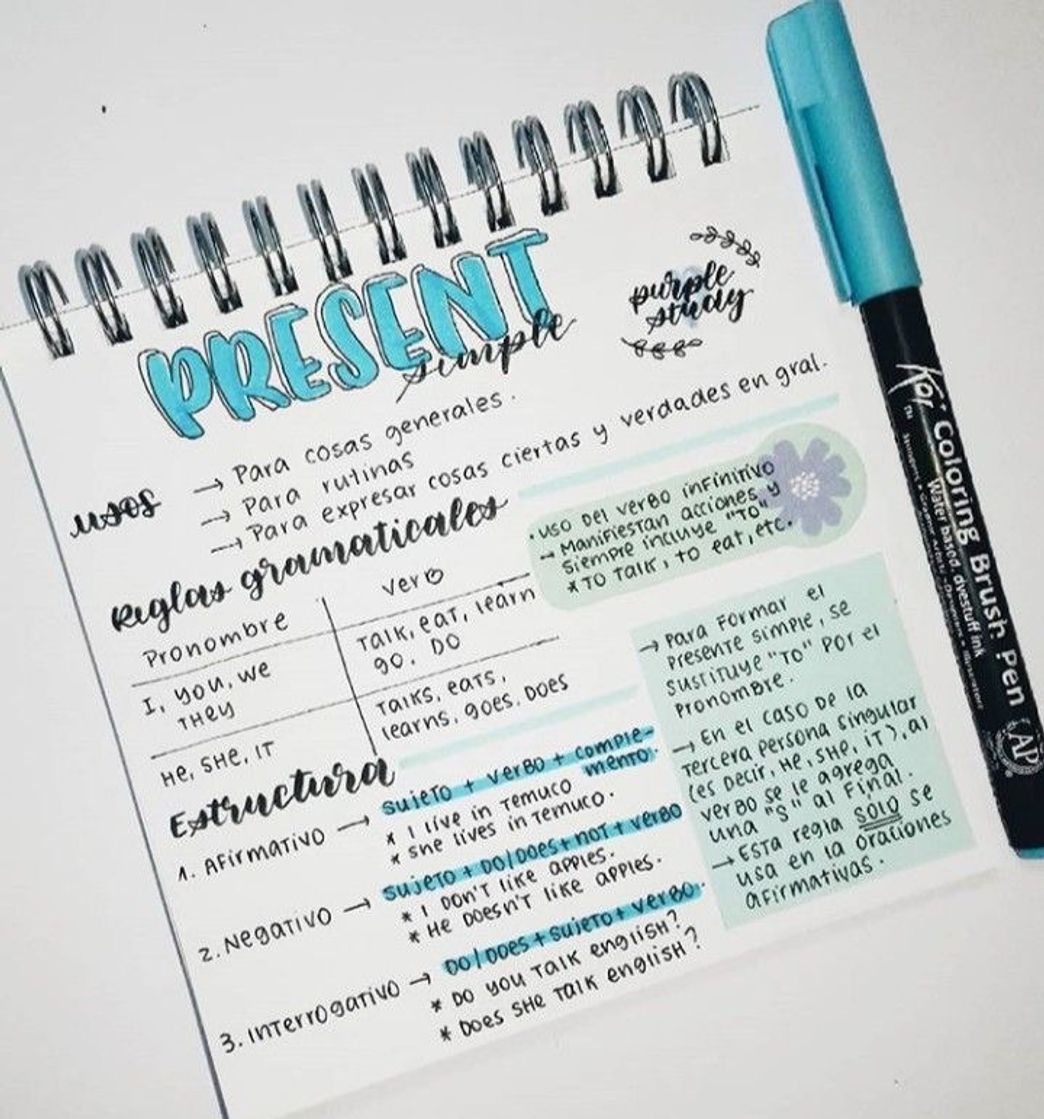 PRESENT
simple
purple
study
usos
→ Para cosas generales.
→ Para rutinas
→ Para expresar cosas ciertas y verdades en gral.
Reglas gramaticales
Pronombre
verbo
I, you, we
THEY
Talk, eat, learn
go. DO
He, SHE, IT
Talks, eats,
learns, goes, Does
• uso DEL verbo infinitivo
→ Manifiestan acciones y
siempre incluye "TO"
* TO Talk, TO eat, etc.
→ Para Formar el
Presente simple, se
sustituye "TO" Por el
Pronombre.
→ En el caso de la
Tercera persona singular
(es Decir, He, SHe, iT), al
verbo se le agrega
una "S" al Final.
→ ESTa regla SOLO se
usa en la oraciones
afirmativas.
Estructura
1. AFirmaTivo → sujeTO + verBO + comple-
mento.
* I live in Temuco
* SHe lives in Temuco.
2. NegaTivo → SujeTO + DO/DOes + NOT + verBO
* I DON'T like apples.
* He Doesn'T like apples.
3. InTerrogaTivo → DO/DOes + SujeTO + verBO.
* DO you Talk english?
* Does SHe Talk english?
Koi
TM
Coloring Brush Pen
Water based dyestuff ink
AP